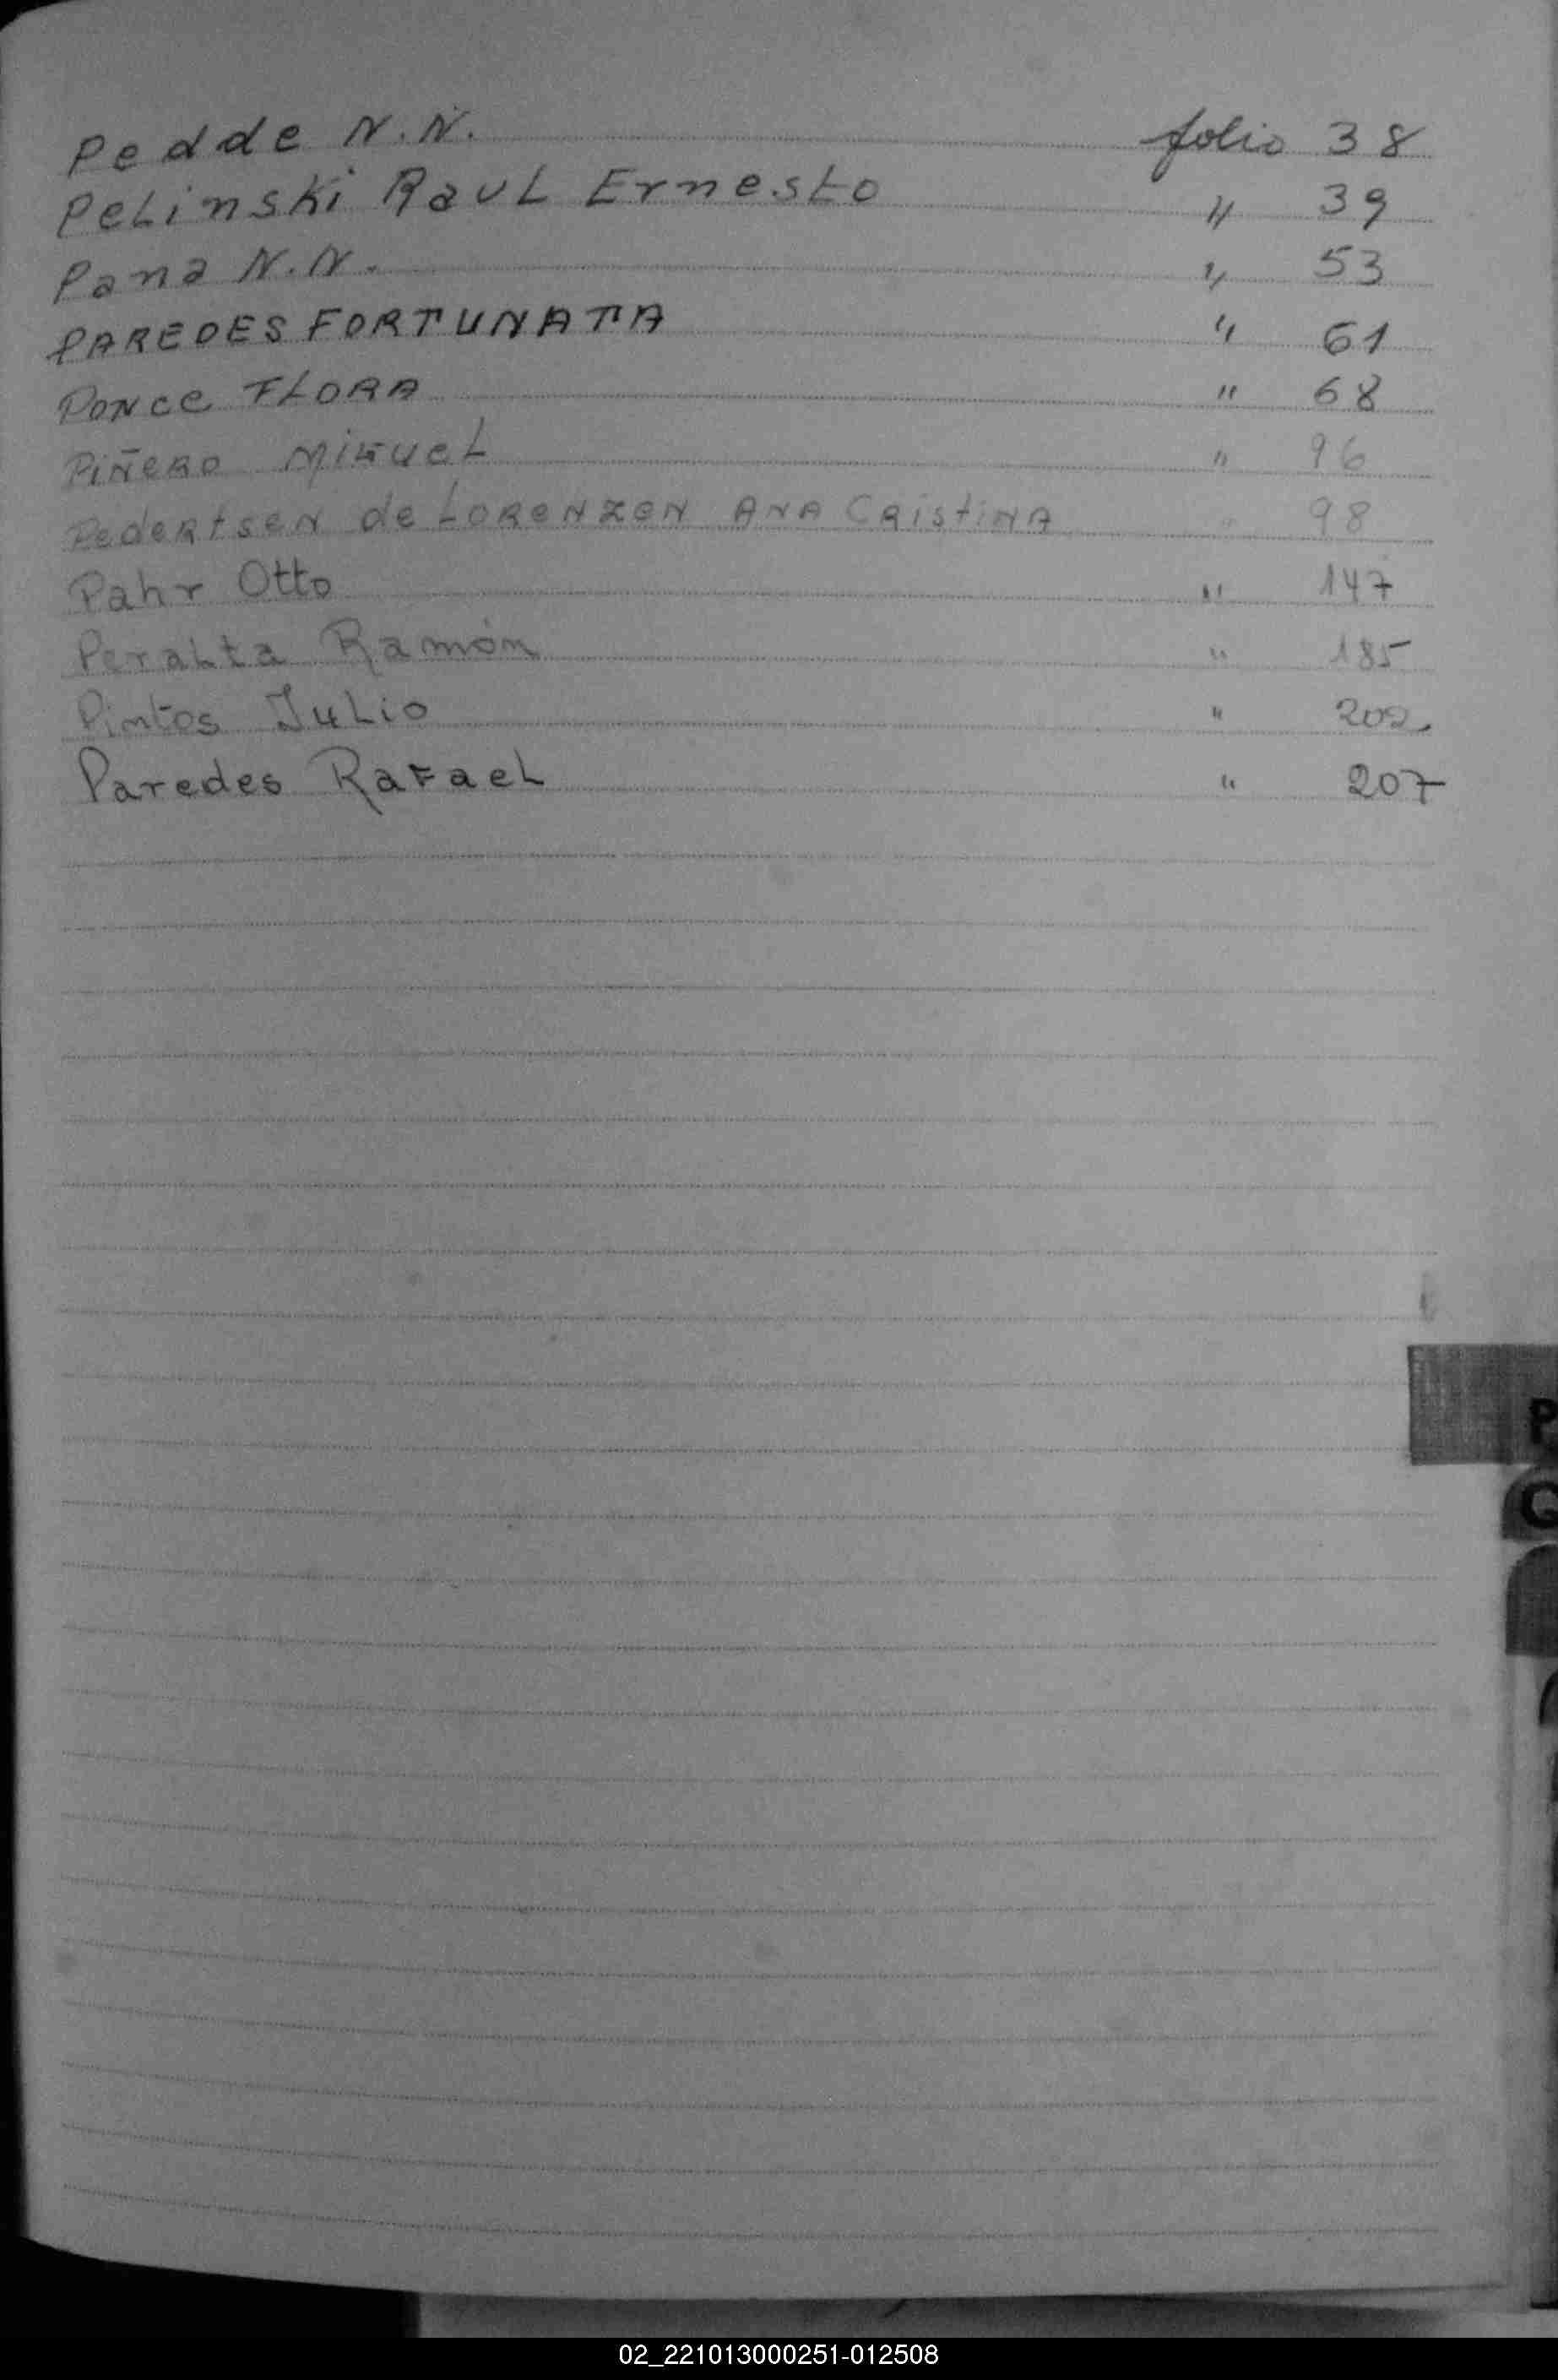 Pedde N.N. folio 38
Pelinski Raul Ernesto " 39
Pana N.N. " 53
PAREDES FORTUNATA " 61
Ponce FLORA " 68
Piñero Miguel " 96
Pedertsen de Lorenzen Ana Cristina " 98
Pahr Otto " 147
Peralta Ramón " 185
Pintos Julio " 202
Paredes Rafael " 207
P
Q
02_221013000251-012508